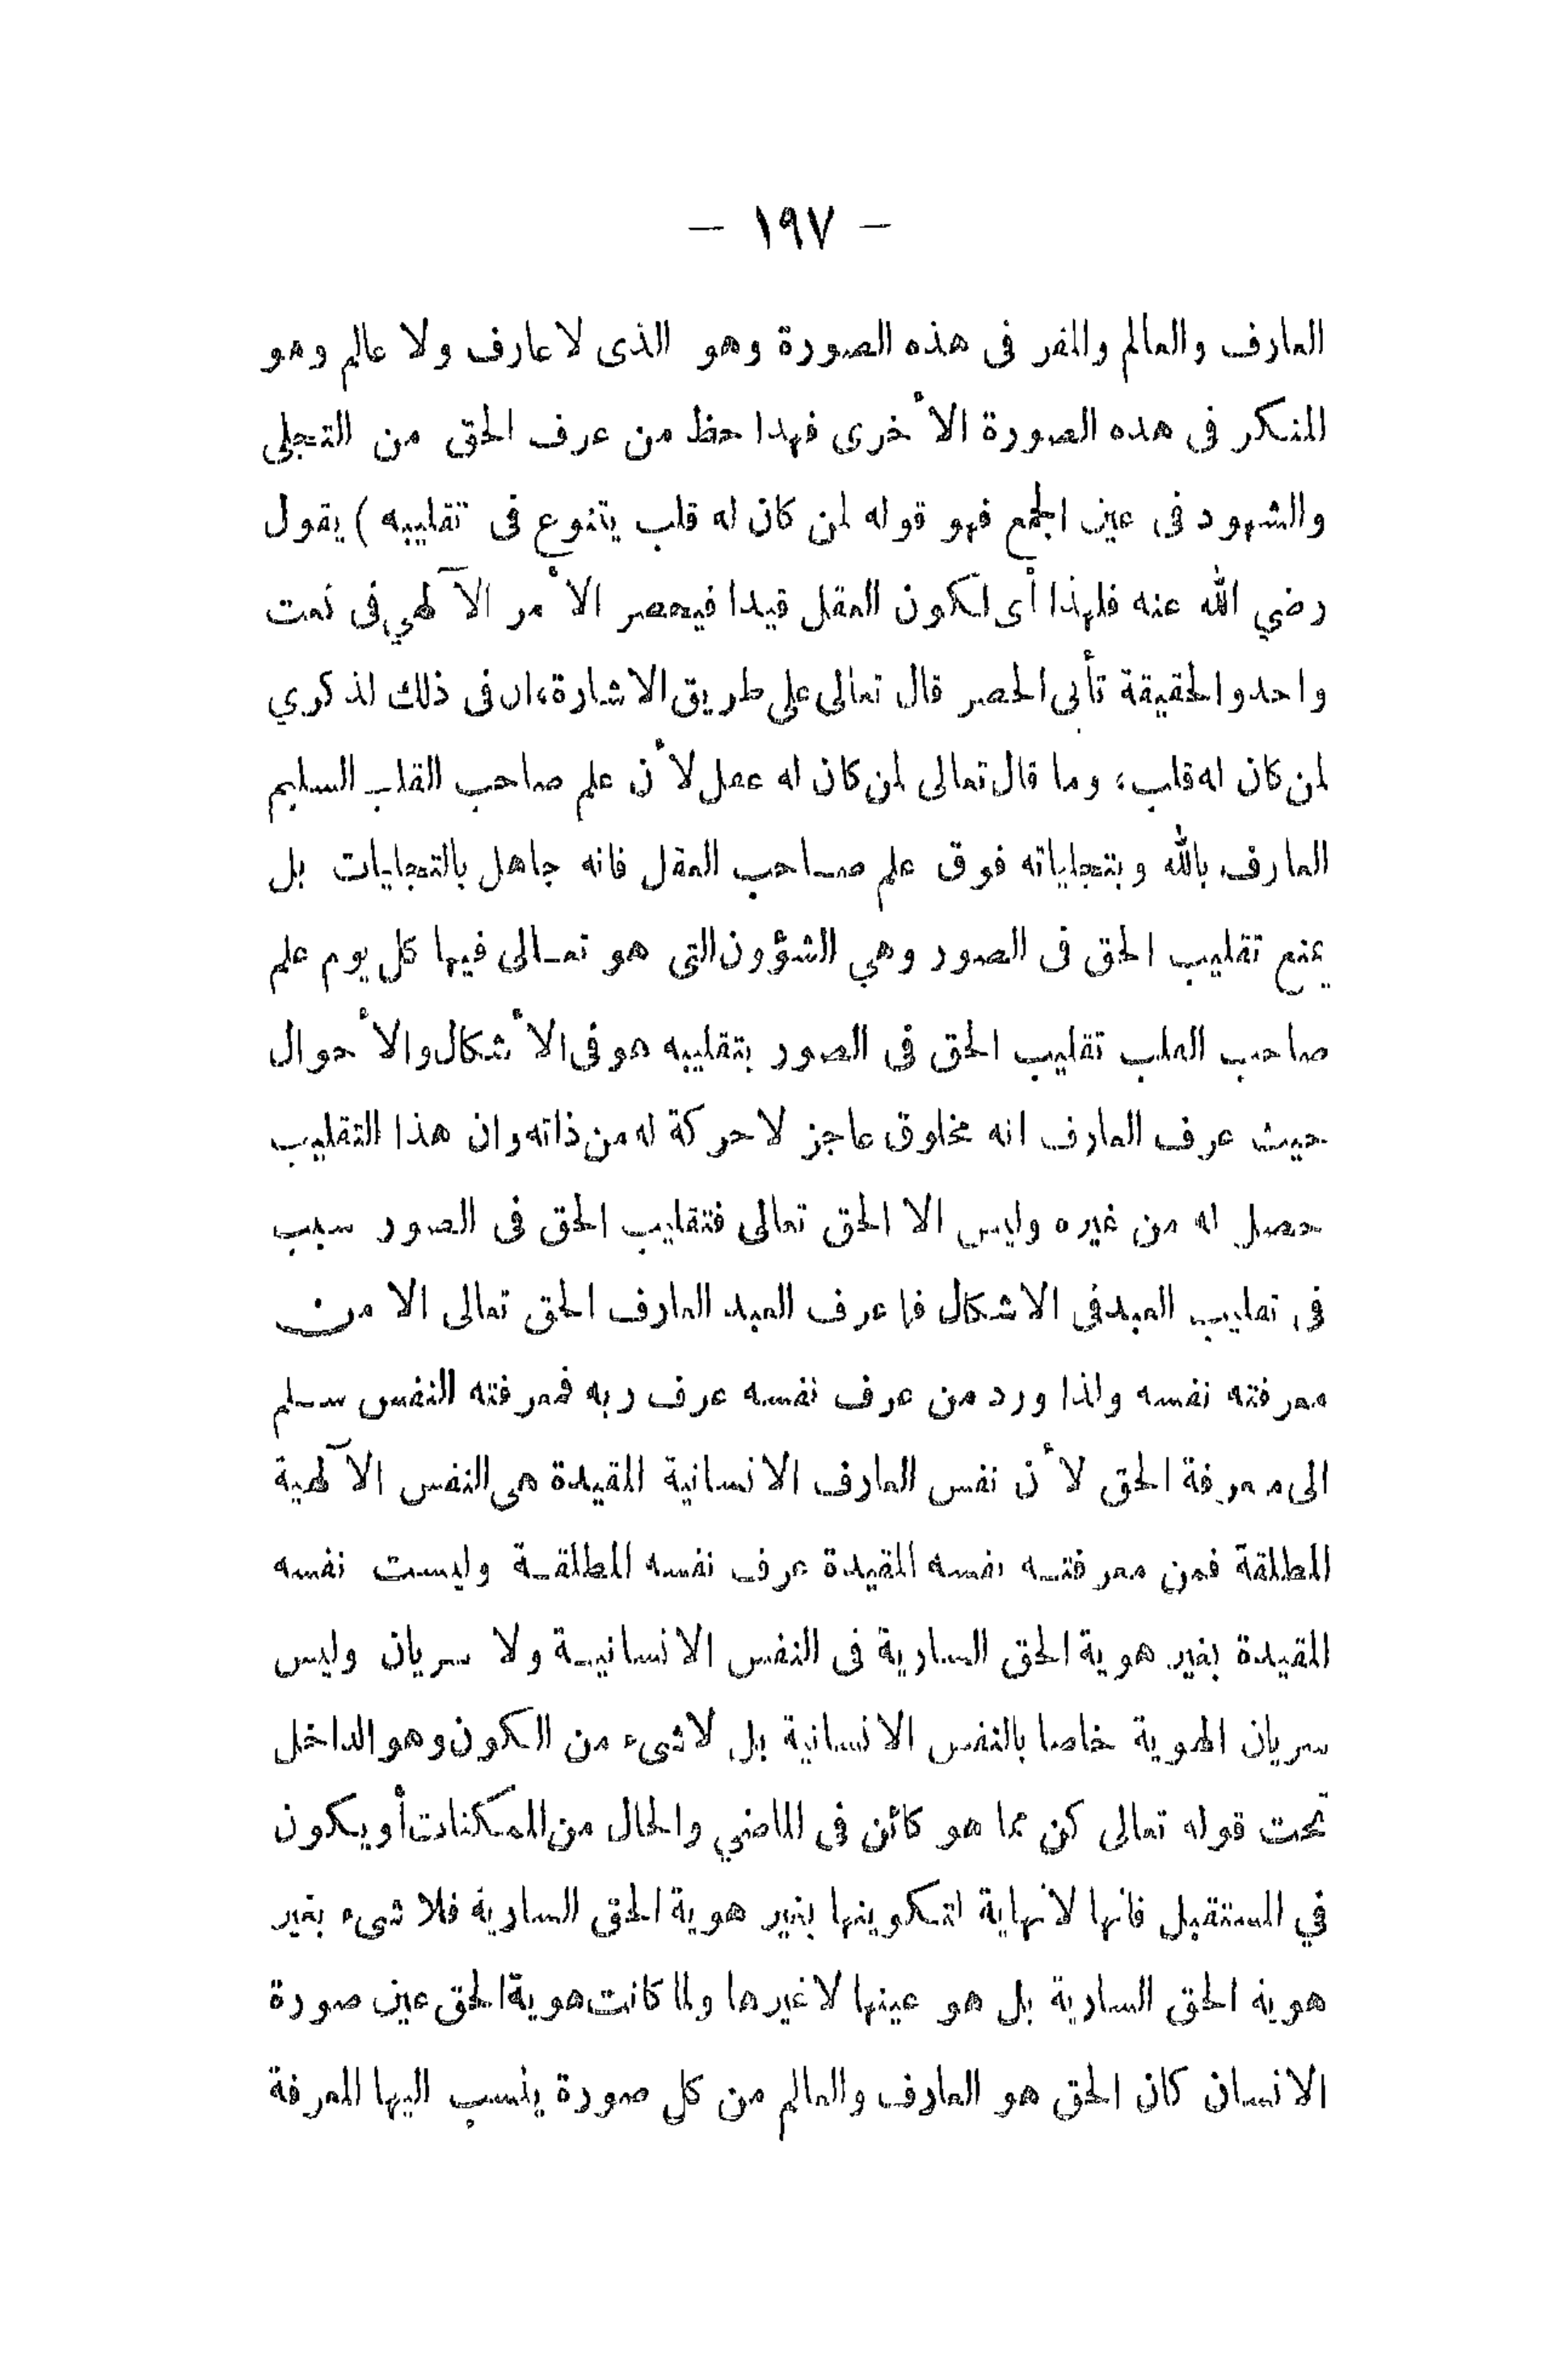 — ١٩٧ —
العارف والعالم والمقر فى هذه الصورة وهو الذى لا عارف ولا عالم وهو
المنكر فى هده الصورة الأخرى فهدا حظ من عرف الحق من التجلى
والشهود فى عين الجمع فهو قوله لمن كان له قلب يتنوع فى تقليبه ) يقول
رضي الله عنه فلهذا أى لكون العقل قيدا فيحصر الأمر الآلهي فى نعت
واحد والحقيقة تأبى الحصر قال تعالى على طريق الاشارة، ان فى ذلك لذكري
لمن كان له قلب، وما قال تعالى لمن كان له عقل لأن علم صاحب القلب السليم
العارف بالله وبتجلياته فوق علم صاحب العقل فانه جاهل بالتجليات بل
يمنع تقليب الحق فى الصور وهي الشؤون التى هو تعالى فيها كل يوم علم
صاحب القلب تقليب الحق فى الصور بتقليبه هو فى الأشكال والأحوال
حيث عرف العارف انه مخلوق عاجز لا حركة له من ذاته وان هذا التقليب
حصل له من غيره وليس الا الحق تعالى فتقليب الحق فى الصور سبب
فى تقليب العبد فى الاشكال فما عرف العبد العارف الحق تعالى الا من
معرفته نفسه ولذا ورد من عرف نفسه عرف ربه فمعرفته النفس سلم
الى معرفة الحق لأن نفس العارف الانسانية المقيدة هى النفس الآلهية
المطلقة فمن معرفته نفسه المقيدة عرف نفسه المطلقة وليست نفسه
المقيدة بغير هوية الحق السارية فى النفس الانسانية ولا سريان وليس
سريان الهوية خاصا بالنفس الانسانية بل لا شىء من الكون وهو الداخل
تحت قوله تعالى كن مما هو كائن فى الماضي والحال من الممكنات أو يكون
في المستقبل فانها لا نهاية لتكوينها بغير هوية الحق السارية فلا شىء بغير
هوية الحق السارية بل هو عينها لا غيرها ولما كانت هوية الحق عين صورة
الانسان كان الحق هو العارف والعالم من كل صورة ينسب اليها المعرفة